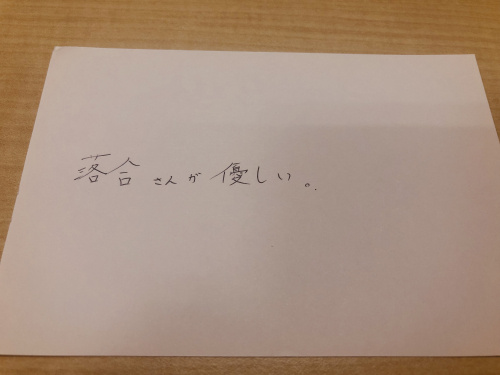 落合さんが優しい。